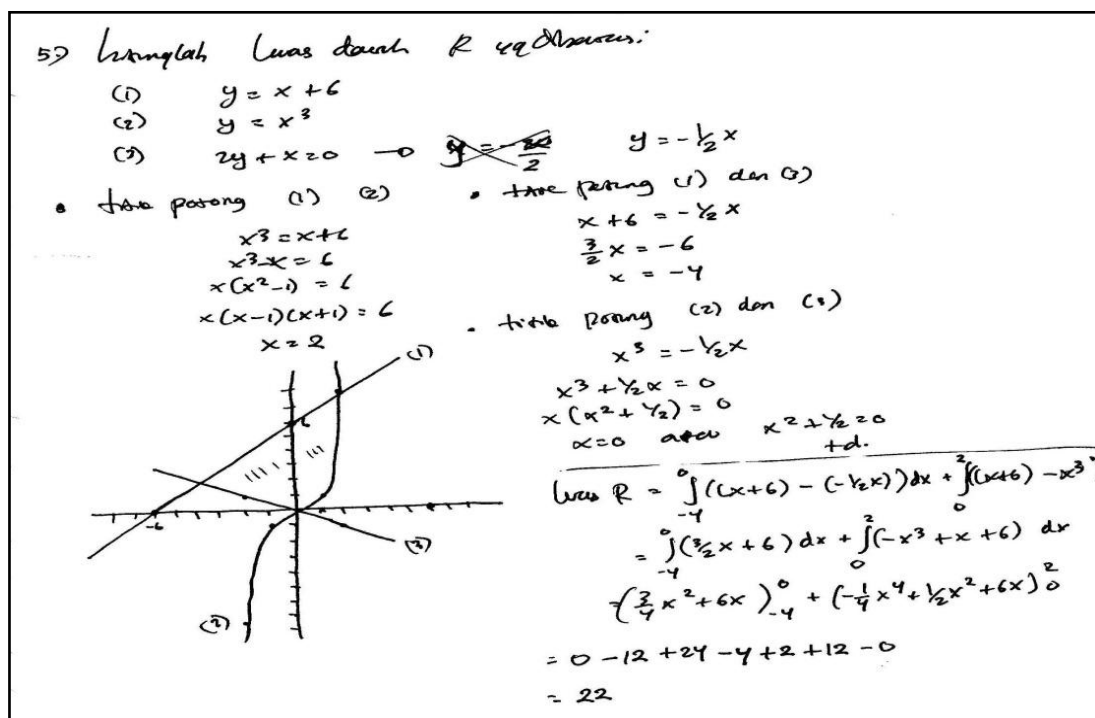 5) Hitunglah luas daerah R yg dibatasi:
(1) y = x + 6
(2) y = x³
(3) 2y + x = 0 → y = -2x/2 y = -½x
• titik potong (1) (2)
x³ = x+6
x³-x = 6
x(x²-1) = 6
x(x-1)(x+1) = 6
x = 2
• titik potong (1) dan (3)
x+6 = -½x
3/2 x = -6
x = -4
• titik potong (2) dan (3)
x³ = -½x
x³ + ½x = 0
x(x² + ½) = 0
x=0 atau x² + ½ = 0
td.
(1)
6
-6
(3)
(2)
Luas R = ∫₋₄⁰ ((x+6) - (-½x)) dx + ∫₀² ((x+6) - x³)
= ∫₋₄⁰ (3/2 x + 6) dx + ∫₀² (-x³ + x + 6) dx
= (3/4 x² + 6x)₋₄⁰ + (-1/4 x⁴ + ½x² + 6x)₀²
= 0 - 12 + 24 - 4 + 2 + 12 - 0
= 22